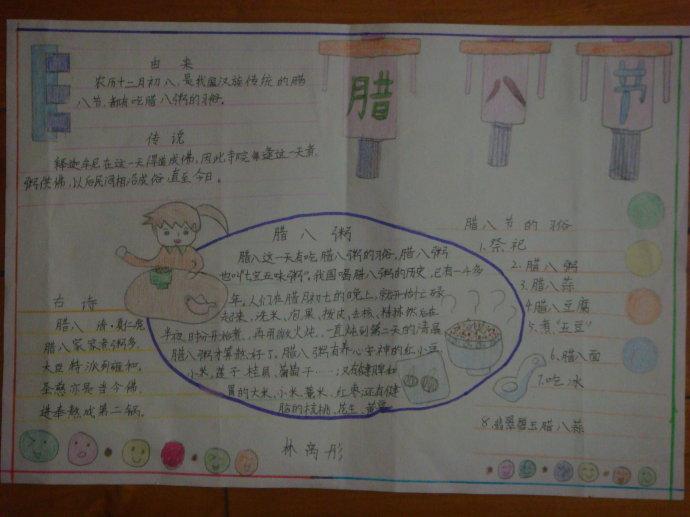 腊八节
由来
农历十二月初八,是我国汉族传统的腊
八节,都有吃腊八粥的习俗。
传说
释迦牟尼在这一天得道成佛,因此寺院每逢这一天煮
粥供佛,以后民间相沿成俗,直至今日。
腊八粥
腊八这一天有吃腊八粥的习俗,腊八粥
也叫"七宝五味粥"。我国喝腊八粥的历史,已有一千多
年。人们在腊月初七的晚上,就开始忙碌
起来,洗米、泡果、拨皮、去核、精拣然后在
半夜时分开始煮,再用微火炖,一直炖到第二天的清晨
腊八粥才算熬好了。腊八粥有养心安神的红小豆
小米、莲子、桂圆、葡萄子……
胃的大米、小米、薏米、红枣;还有健
脑的核桃、花生
古诗
腊八 清·夏仁虎
腊八家家煮粥多,
大臣特派到雍和。
圣慈亦是当今佛,
进奉熬成第二锅。
腊八节的习俗
1.祭祀
2.腊八粥
3.腊八蒜
4.腊八豆腐
5.煮"五豆"
6.腊八面
7.吃冰
8.翡翠碧玉腊八蒜
林
彤